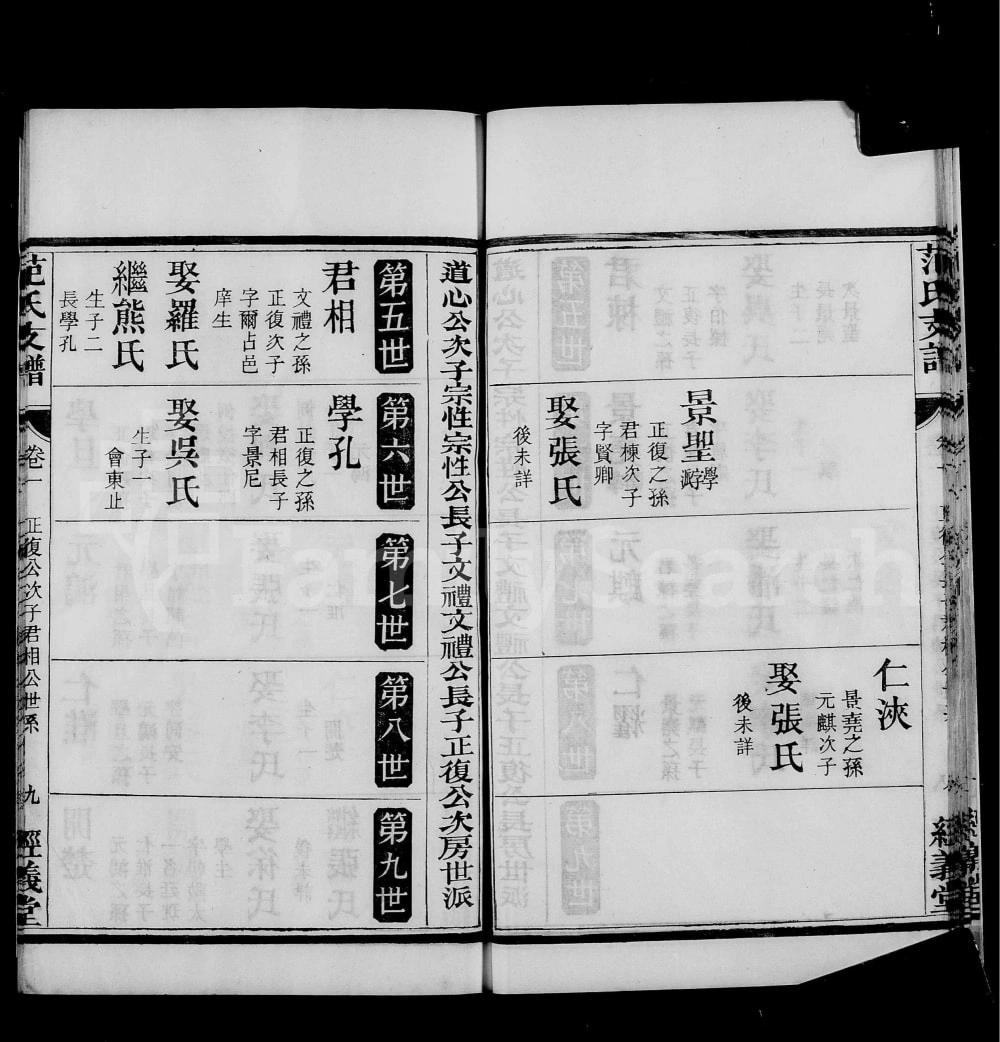 景聖
學
游
正復之孫
君棟次子
字賢卿
娶張氏
後未詳
仁浹
景堯之孫
元麒次子
娶張氏
後未詳
道心公次子宗性宗性公長子文禮文禮公長子正復公次房世派
第五世
第六世
第七世
第八世
第九世
君相
文禮之孫
正復次子
字爾占邑
庠生
娶羅氏
繼熊氏
生子二
長學孔
學孔
正復之孫
君相長子
字景尼
娶吳氏
生子一
會東止
范氏支譜
卷一
正復公次子君相公世系
九
經義堂
FamilySearch